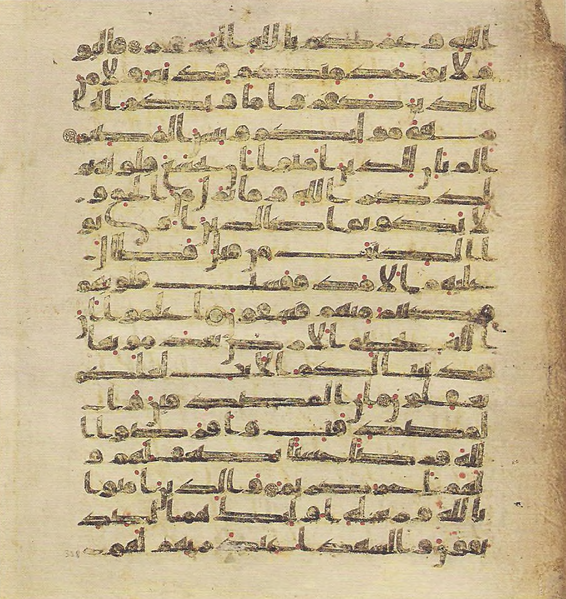 الله وغركم بالله الغرور فاليو
م لا يوخذ منكم فديه ولا من
الذين كفروا ماويكم النا
ر هي موليكم وبيس المصير
الم يان للذين امنوا ان تخشع قلوبهم
لذكر الله وما نزل من الحق و
لا يكونوا كالذين اوتو
ا الكتب من قبل فطال
عليهم الامد فقست قلوبهم
وكثير منهم فسقون اعلموا ان
الله يحي الارض بعد موتها
قد بينا لكم الايت لعلكم
تعقلون ان المصدقين وا
لمصدقت واقرضوا ا
لله قرضا حسنا يضعف لهم و
لهم اجر كريم والذين امنوا
بالله ورسله اوليك هم الصد
يقون والشهدا عند ربهم لهم